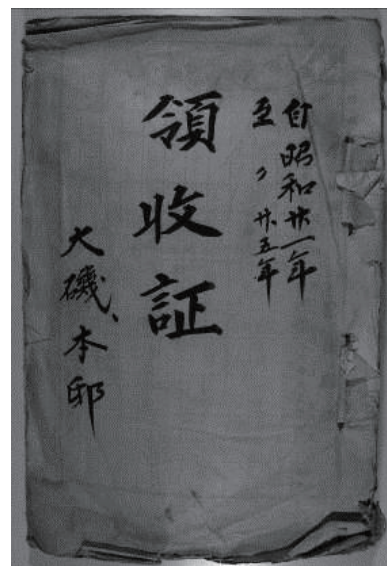 自昭和廿一年
至〃廿五年
領收証
大磯、本邸